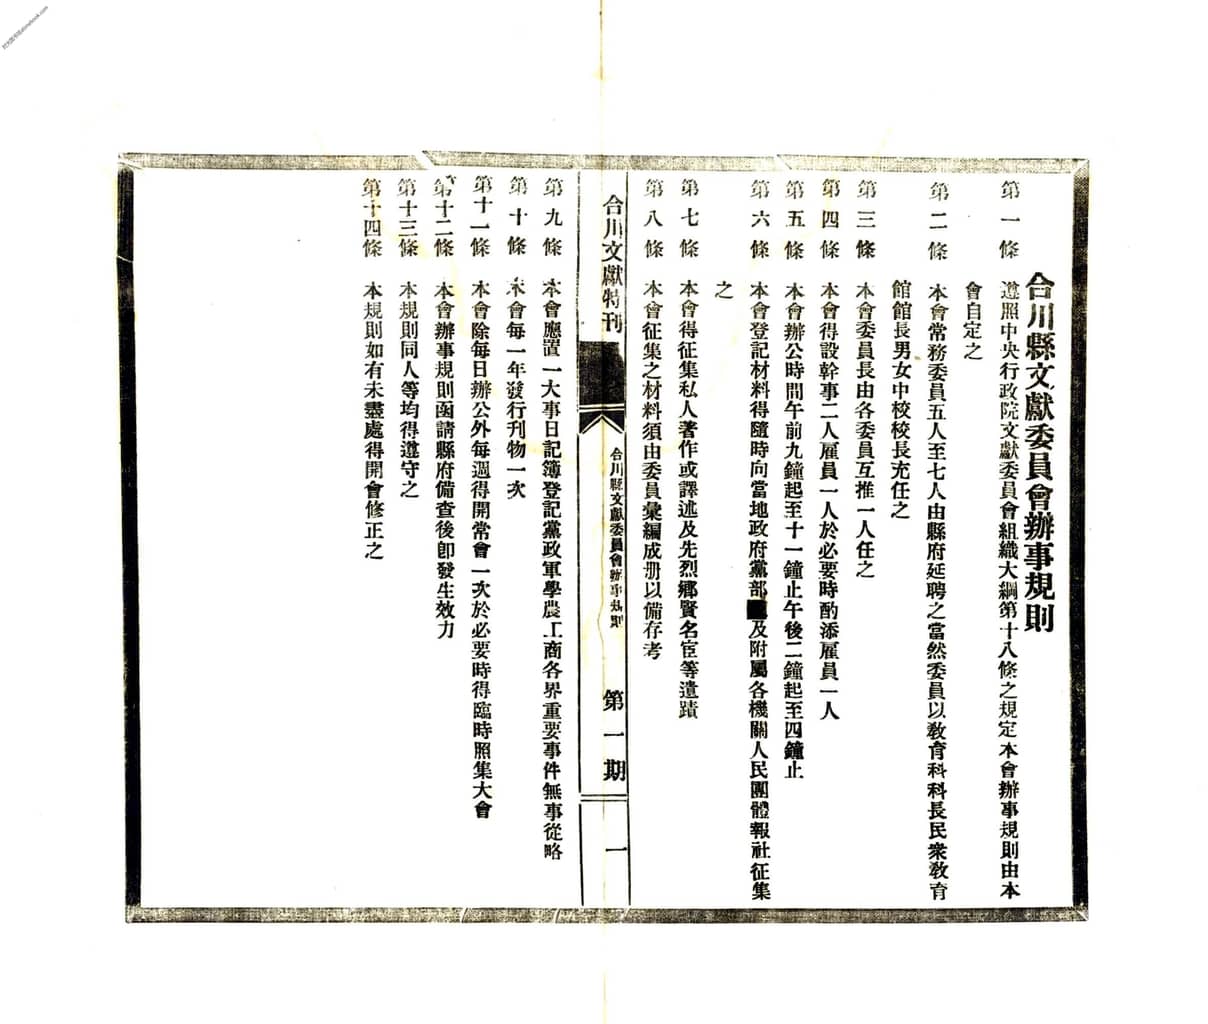 合川縣文獻委員會辦事規則
第一條 遵照中央行政院文獻委員會組織大綱第十八條之規定本會辦事規則由本
會自定之
第二條 本會常務委員五人至七人由縣府延聘之當然委員以教育科科長民衆教育
館館長男女中校校長充任之
第三條 本會委員長由各委員互推一人任之
第四條 本會得設幹事二人雇員一人於必要時酌添雇員一人
第五條 本會辦公時間午前九鐘起至十一鐘止午後二鐘起至四鐘止
第六條 本會登記材料得隨時向當地政府黨部及附屬各機關人民團體報社征集
之
第七條 本會得征集私人著作或譯述及先烈鄉賢名宦等遺蹟
第八條 本會征集之材料須由委員彙編成册以備存考
合川文獻特刊
合川縣文獻委員會辦事規則
第一期
一
第九條 本會應置一大事日記簿登記黨政軍學農工商各界重要事件無事從略
第十條 本會每一年發行刊物一次
第十一條 本會除每日辦公外每週得開常會一次於必要時得臨時照集大會
第十二條 本會辦事規則函請縣府備查後卽發生效力
第十三條 本規則同人等均得遵守之
第十四條 本規則如有未盡處得開會修正之